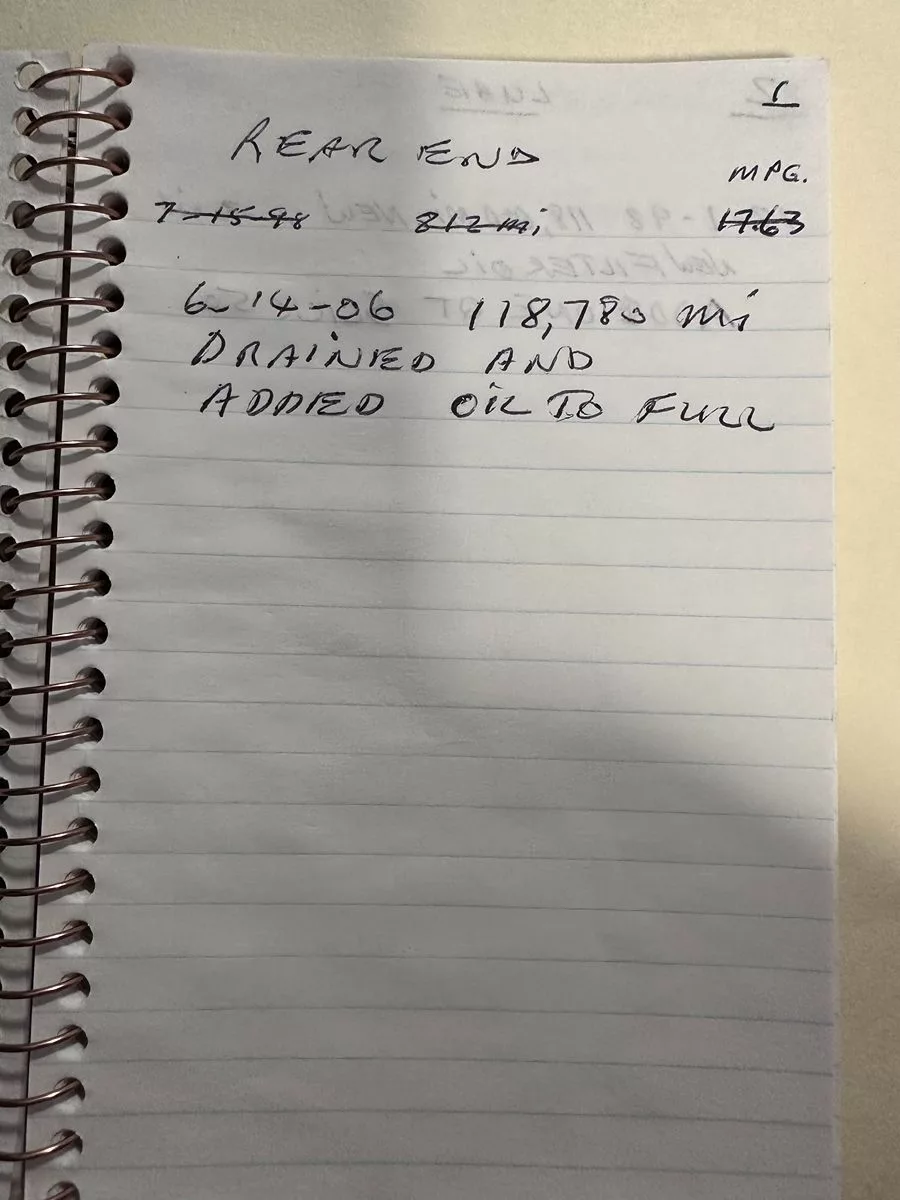 1
REAR END
MPG.
7-15-98 812 mi 17.63
6-14-06 118,780 mi
DRAINED AND
ADDED OIL TO FULL